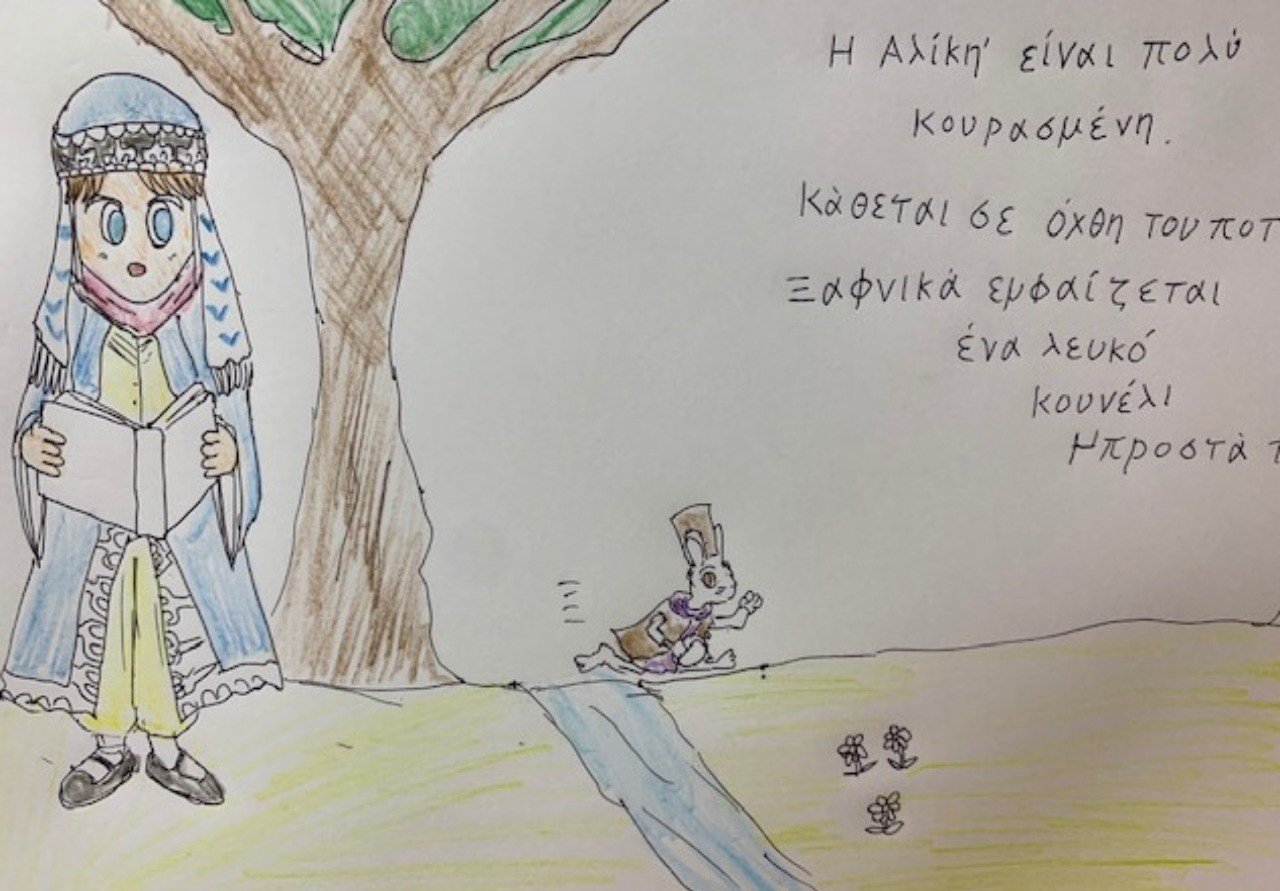 Η Αλίκη είναι πολύ
κουρασμένη.
Κάθεται σε όχθη του ποτ
Ξαφνικά εμφαίζεται
ένα λευκό
κουνέλι
Μπροστά τ